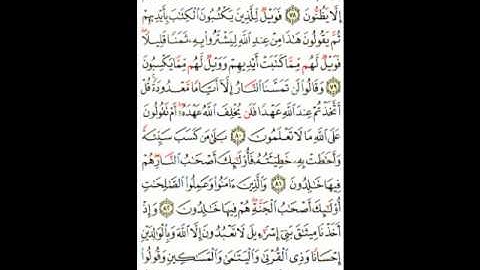 إِلَّا يَظُنُّونَ ٧٨ فَوَيْلٌ لِّلَّذِينَ يَكْتُبُونَ ٱلْكِتَٰبَ بِأَيْدِيهِمْ
ثُمَّ يَقُولُونَ هَٰذَا مِنْ عِندِ ٱللَّهِ لِيَشْتَرُوا۟ بِهِۦ ثَمَنًا قَلِيلًا
فَوَيْلٌ لَّهُم مِّمَّا كَتَبَتْ أَيْدِيهِمْ وَوَيْلٌ لَّهُم مِّمَّا يَكْسِبُونَ
٧٩ وَقَالُوا۟ لَن تَمَسَّنَا ٱلنَّارُ إِلَّآ أَيَّامًا مَّعْدُودَةً قُلْ
أَتَّخَذْتُمْ عِندَ ٱللَّهِ عَهْدًا فَلَن يُخْلِفَ ٱللَّهُ عَهْدَهُۥٓ أَمْ تَقُولُونَ
عَلَى ٱللَّهِ مَا لَا تَعْلَمُونَ ٨٠ بَلَىٰ مَن كَسَبَ سَيِّئَةً
وَأَحَٰطَتْ بِهِۦ خَطِيٓـَٔتُهُۥ فَأُو۟لَٰٓئِكَ أَصْحَٰبُ ٱلنَّارِ هُمْ
فِيهَا خَٰلِدُونَ ٨١ وَٱلَّذِينَ ءَامَنُوا۟ وَعَمِلُوا۟ ٱلصَّٰلِحَٰتِ
أُو۟لَٰٓئِكَ أَصْحَٰبُ ٱلْجَنَّةِ هُمْ فِيهَا خَٰلِدُونَ ٨٢ وَإِذْ
أَخَذْنَا مِيثَٰقَ بَنِىٓ إِسْرَٰٓءِيلَ لَا تَعْبُدُونَ إِلَّا ٱللَّهَ وَبِٱلْوَٰلِدَيْنِ
إِحْسَانًا وَذِى ٱلْقُرْبَىٰ وَٱلْيَتَٰمَىٰ وَٱلْمَسَٰكِينِ وَقُولُوا۟